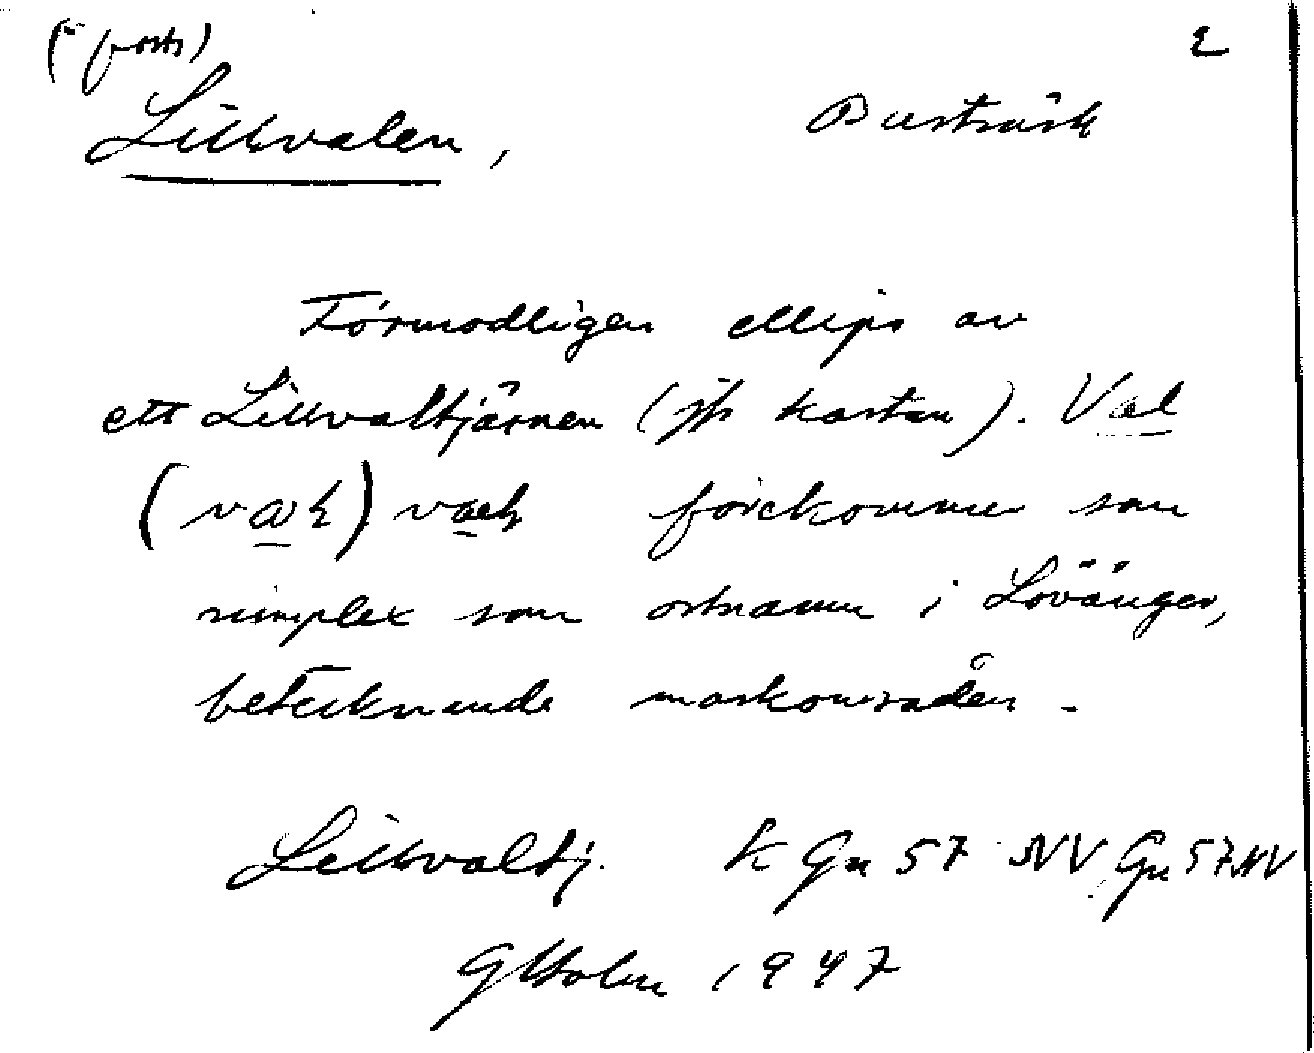 (forts) 2
Lillvalen, Burträsk
Förmodligen ellips av
ett Lillvaltjärnen (jfr kartan). Val
förekommer som
simplex som ortnamn i Lövånger,
betecknande markområden -
Lillvaltj. k Gn 57 NV, Gn 57 NV
G Holm 1947